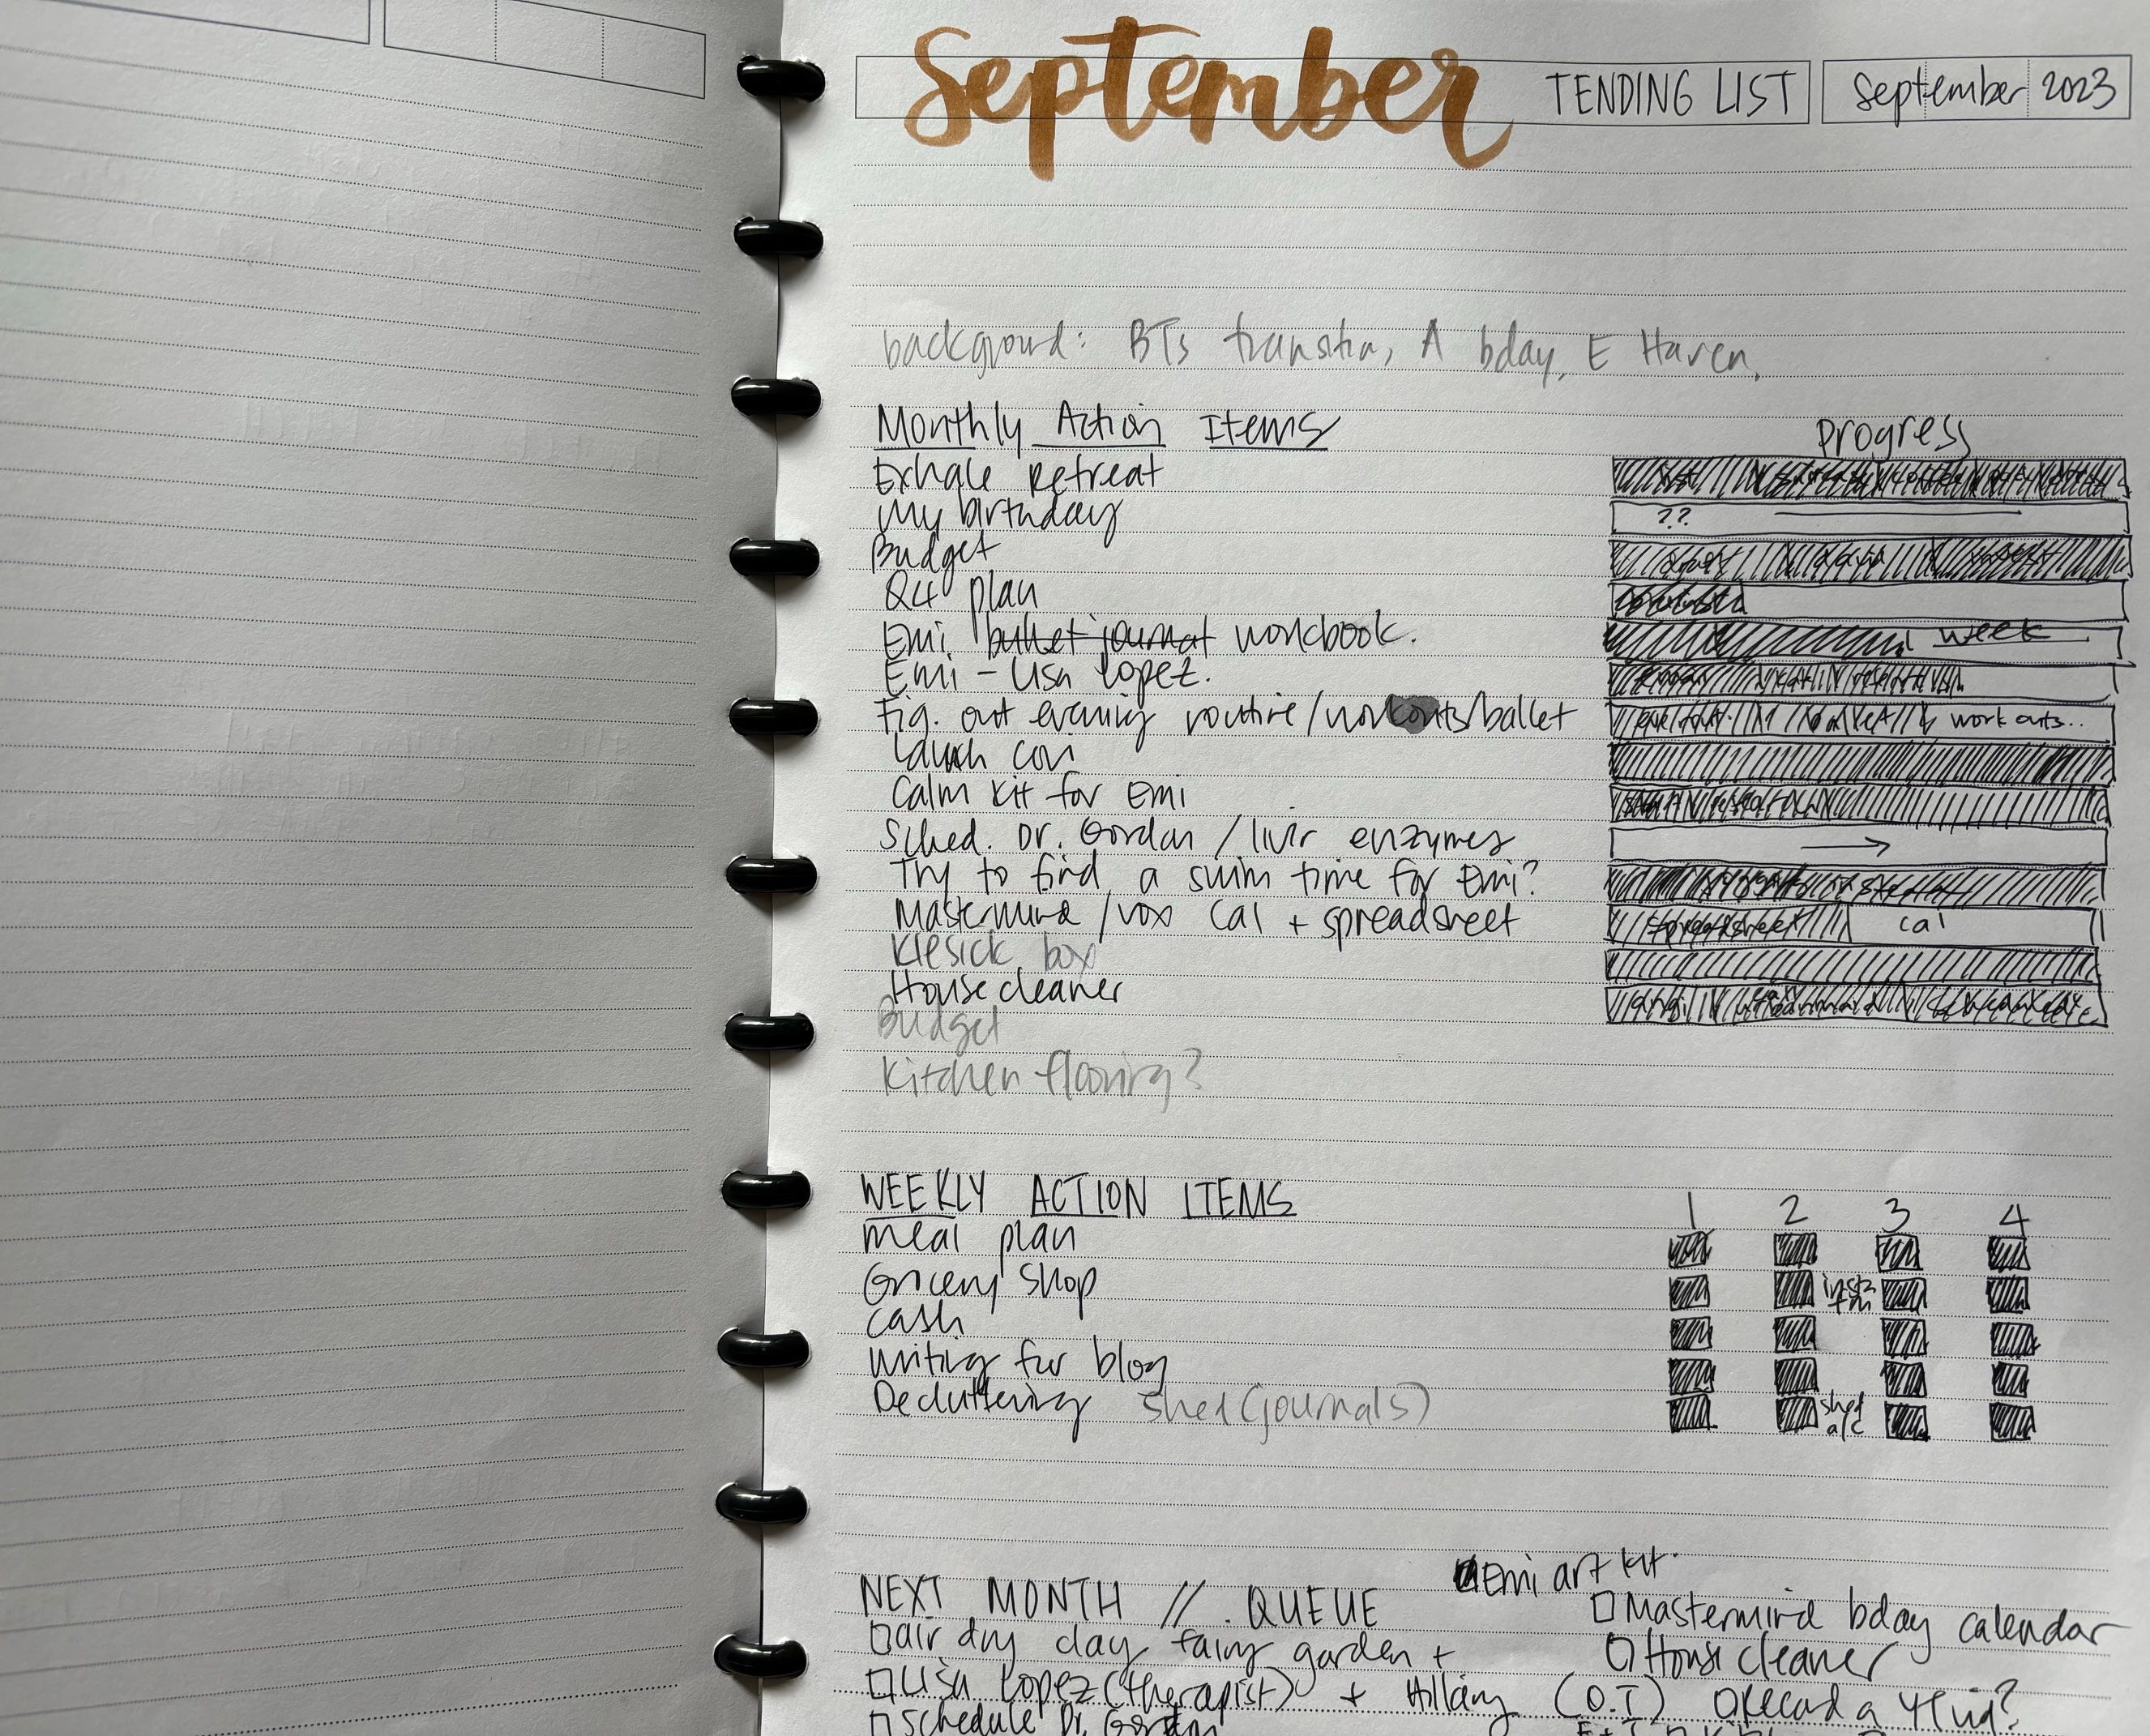 September TENDING LIST September 2023
background: BTS A bday, E Haven,
Monthly Action Items Progress
Exhale Retreat
My birthday ??
Budget
Q4 plan
Emi bullet journal workbook. week
Emi - Lisa Lopez.
Fig. out evening routine/workouts/ballet work outs..
Launch
Calm kit for Emi
Sched. Dr. Gordon / enzymes →
Try to find a swim time for Emi?
Mastermind /vox cal + spreadsheet spreadsheet cal
Klesick box
House cleaner
Budget
Kitchen flooring?
WEEKLY ACTION ITEMS 1 2 3 4
meal plan
Grocery shop
cash
writing for blog
Decluttering shed (journals) shed
Emi art kit.
NEXT MONTH // QUEUE Mastermind bday calendar
air dry clay fairy garden + House cleaner
Lisa Lopez (therapist) + Hillary (O.T) Record a
Schedule Dr. Gordon